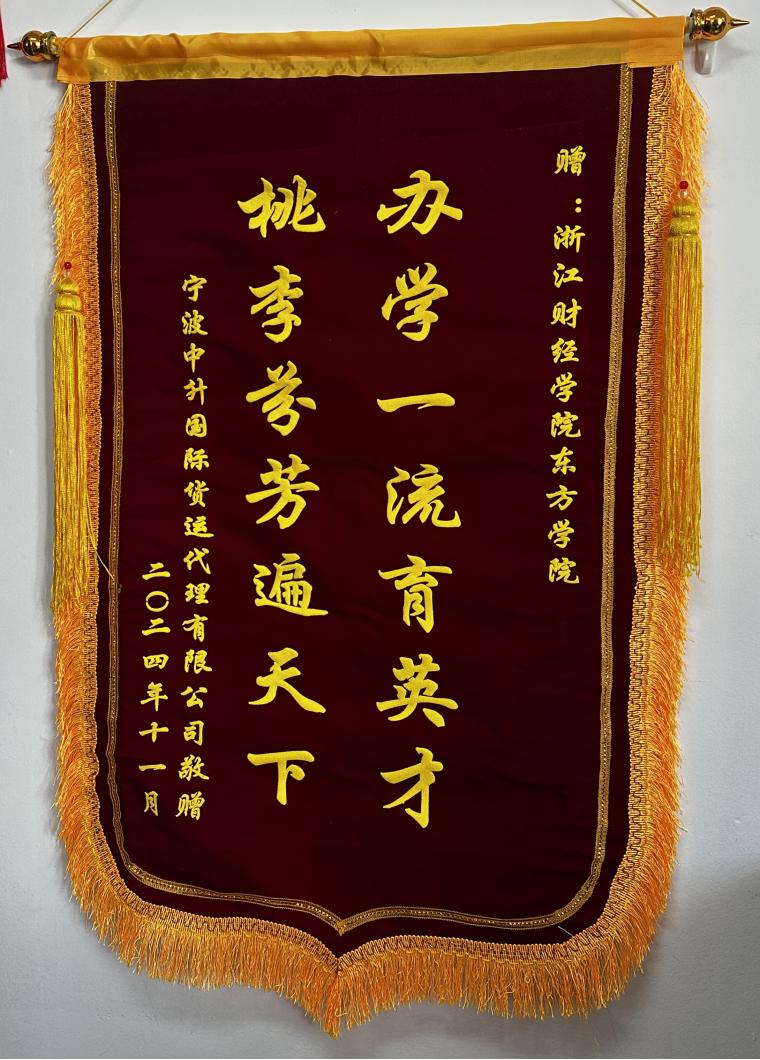 赠：浙江财经学院东方学院
办学一流育英才
桃李芬芳遍天下
宁波中升国际货运代理有限公司敬赠
二〇二四年十一月